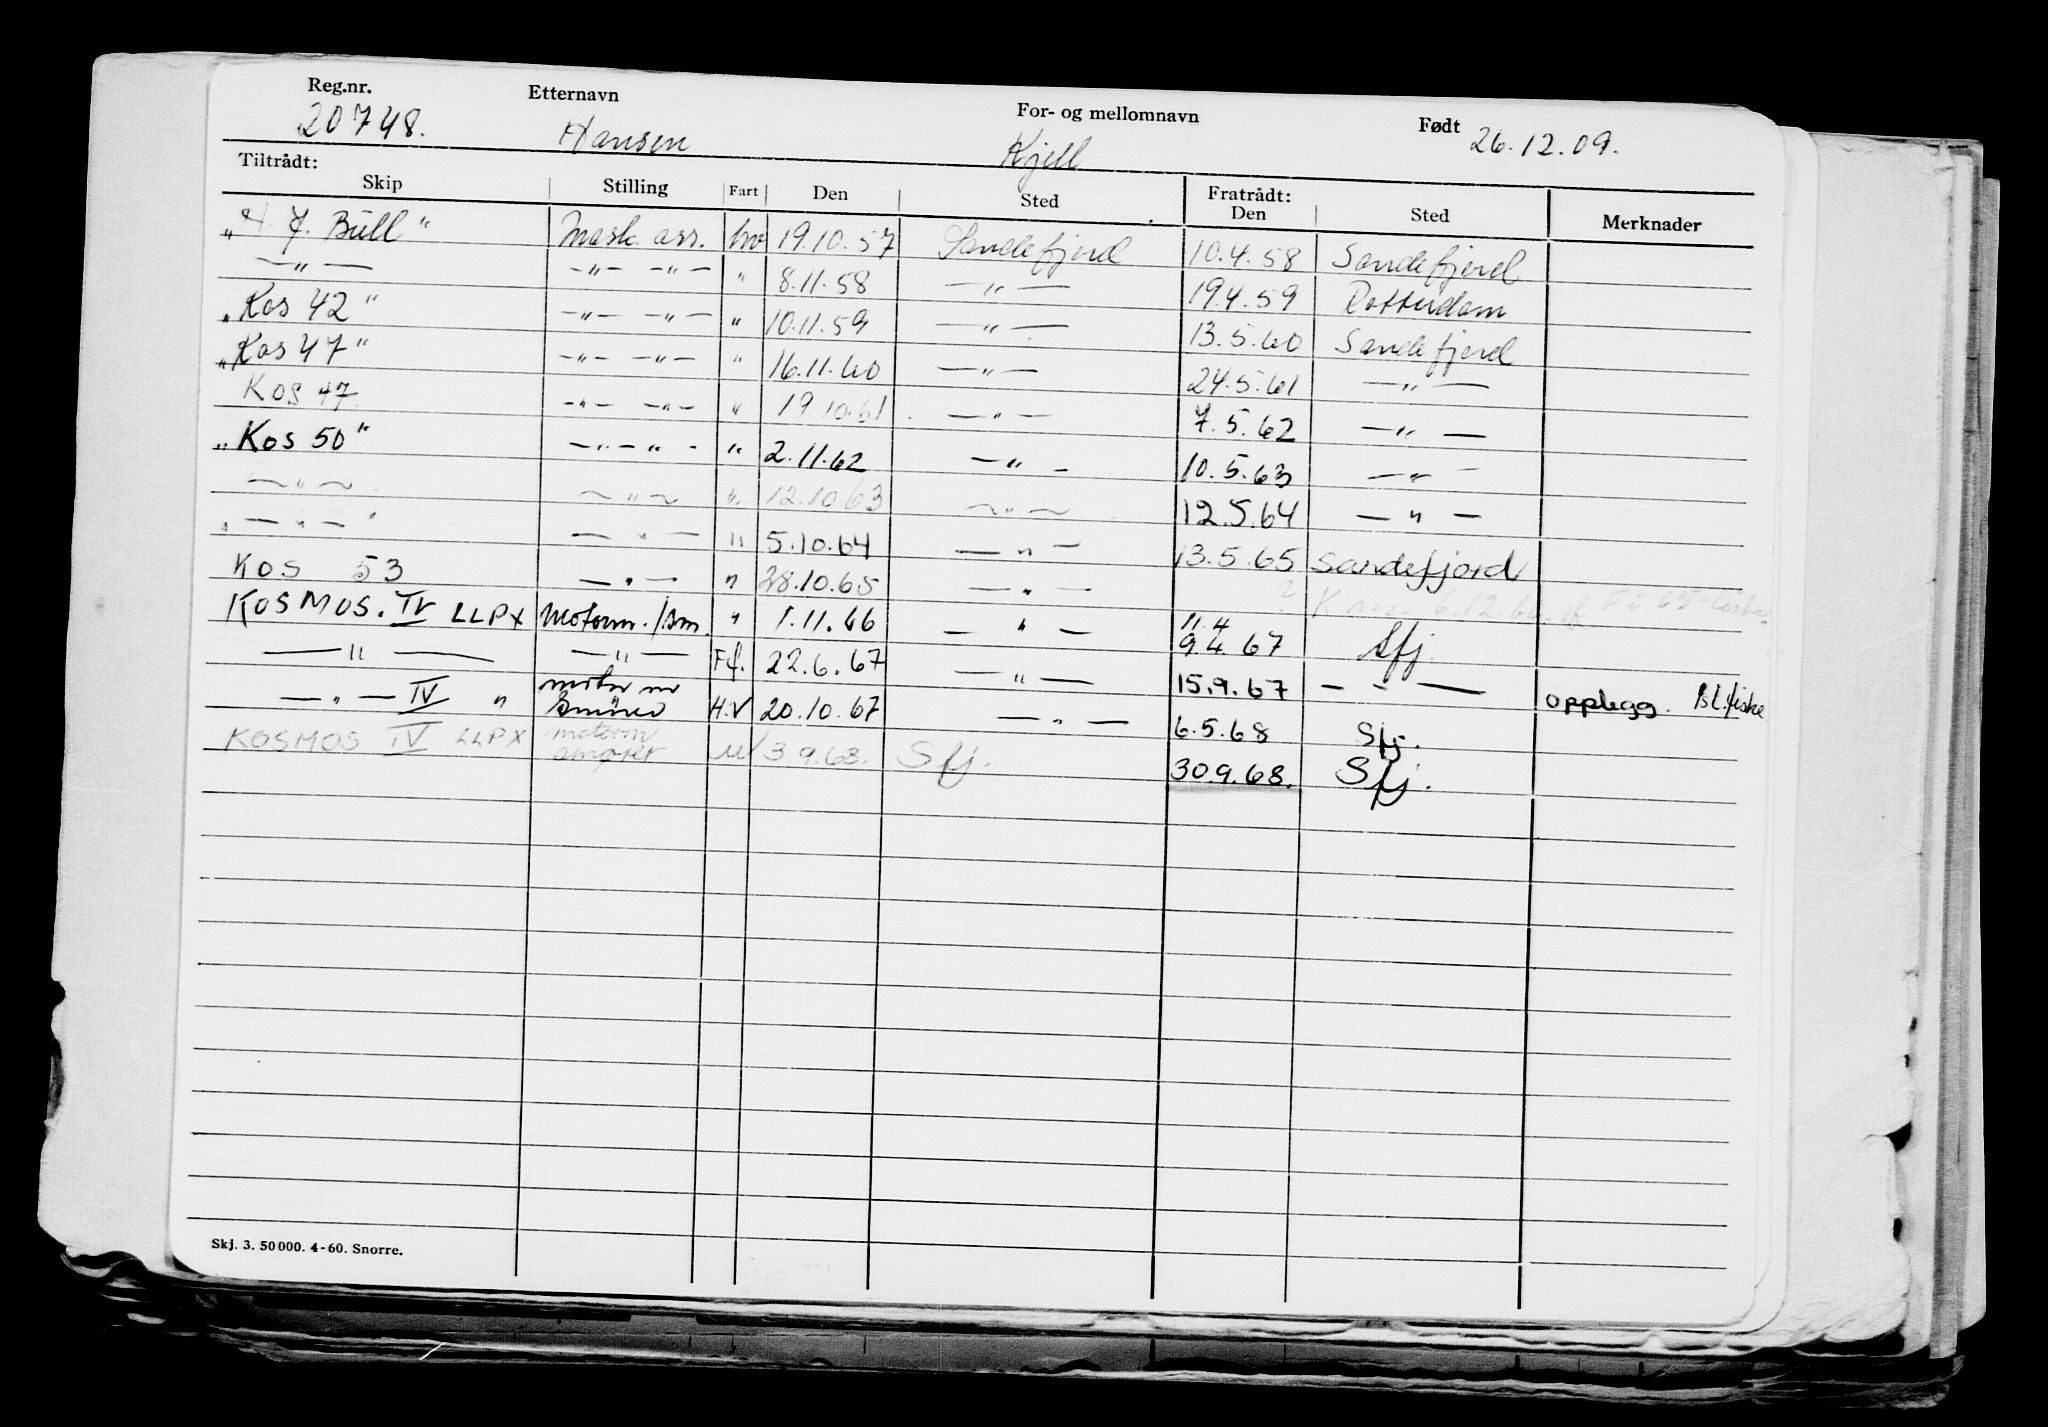 Reg.nr. Etternavn For- og mellomnavn Født
20748. Hansen Kjell 26.12.09.
Tiltrådt: Fratrådt:
Skip Stilling Fart Den Sted Den Sted Merknader
„H. J. Bull" Mask. ass. hv 19.10.57 Sandefjord 10.4.58 Sandefjord
—„— —„— —„— „ 8.11.58 —„— 19.4.59 Rotterdam
„Kos 42" —„— —„— „ 10.11.59 —„— 13.5.60 Sandefjord
„Kos 47" —„— —„— „ 16.11.60 —„— 24.5.61 —„—
Kos 47 —„— —„— „ 19.10.61 —„— 7.5.62 —„—
„Kos 50" —„—„— „ 2.11.62 —„— 10.5.63 —„—
—„— —„— „ 12.10.63 —„— 12.5.64 —„—
„—„—" —„— „ 5.10.64 —„— 13.5.65 Sandefjord
KOS 53 —„— „ 28.10.65 —„— ?
KOSMOS. IV LLPX Motorm./Sm. „ 1.11.66 —„— 11.4 9.4.67 Sfj.
—„— —„— Ff. 22.6.67 —„— 15.9.67 — - — opplegg. Bl.fiske
—„— IV „ motorm Smörer H.V 20.10.67 —„— 6.5.68 Sfj.
KOSMOS IV LLPX motorm smører U 3.9.68. Sfj. 30.9.68. Sfj.
Skj. 3. 50000. 4-60. Snorre.